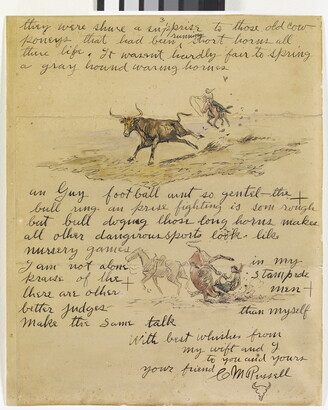 they were shure a supprise to those old cow
poneys that had been running short horns all
thire life. It wasent hardly fair to spring
a gray hound waring hornes
an Guy foot ball aint so gentel the +
bull ring an prise fighting is som rough
but bull doging those long horns makes +
all other dangirous sports look like
nursery games
I am not alone in my
praise of the + Stampede
there are other men +
better judges than myself
make the same talk
With best whishes from
my wift and I
to you and yours
your friend C M Russell